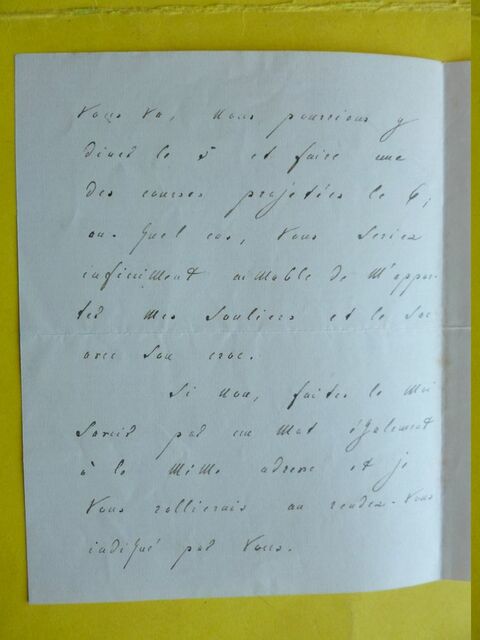 vous va, nous pourrions y
diner le 5 et faire une
des courses projetées le 6,
au quel cas, vous seriez
infiniment aimable de m'appor-
ter mes souliers et le sac
avec son croc.
Si non, faites le moi
savoir par un mot également
à la même adresse et je
vous rallierais au rendez-vous
indiqué par vous.